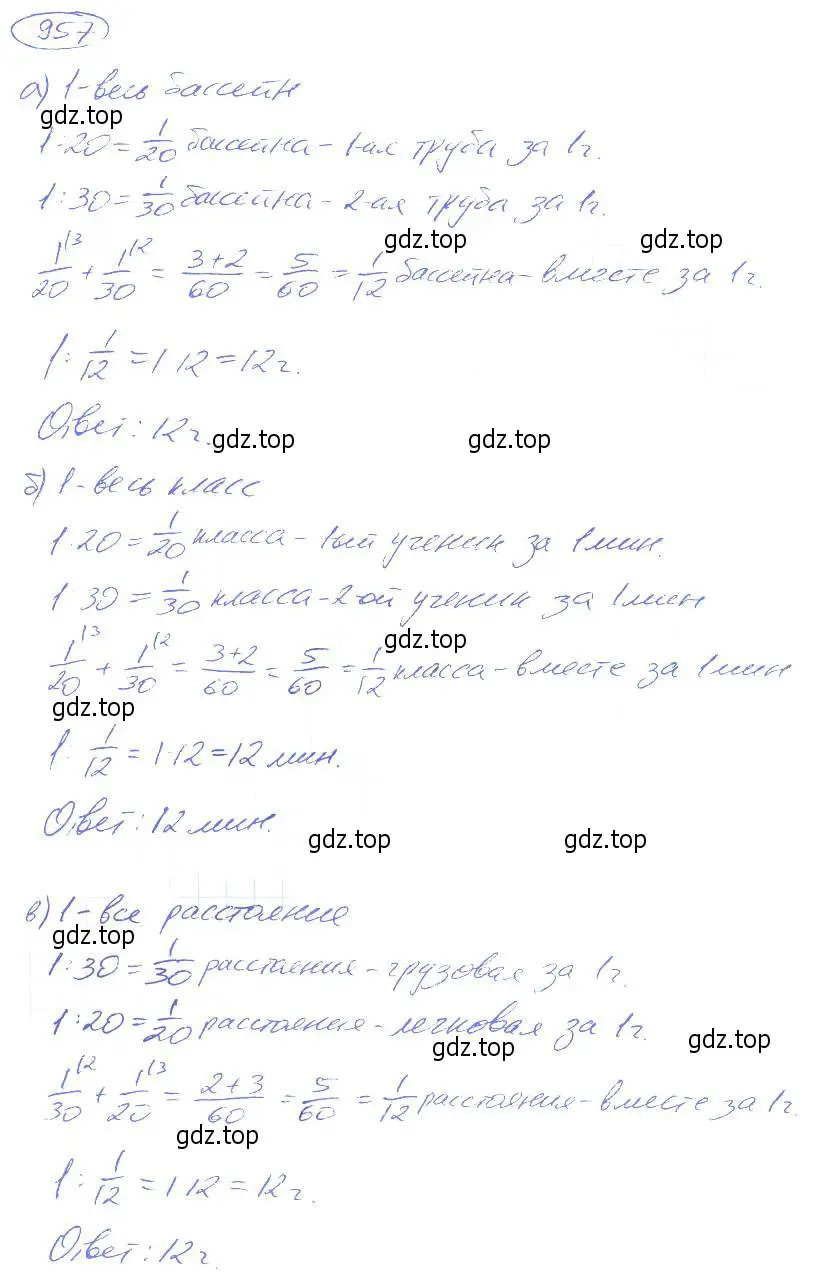 957
а) 1-весь бассейн
gdz.top
1:20=1/20 бассейна-1-ая труба за 1ч.
1:30=1/30 бассейна-2-ая труба за 1ч.
gdz.top gdz.top
1|3/20+1|2/30=3+2/60=5/60=1/12 бассейна-вместе за 1ч.
1:1/12=1·12=12ч.
Ответ: 12ч.
gdz.top gdz.top
б) 1-весь класс
1:20=1/20 класса-1ый ученик за 1мин.
1:30=1/30 класса-2-ой ученик за 1мин
gdz.top
1|3/20+1|2/30=3+2/60=5/60=1/12 класса-вместе за 1мин
gdz.top
1:1/12=1·12=12 мин.
Ответ: 12 мин.
gdz.top gdz.top
в) 1-все расстояние
gdz.top
1:30=1/30 расстояния-грузовая за 1ч.
1:20=1/20 расстояния-легковая за 1ч.
gdz.top gdz.top
1|2/30+1|3/20=2+3/60=5/60=1/12 расстояния-вместе за 1ч.
gdz.top
1:1/12=1·12=12ч.
gdz.top
Ответ: 12ч.